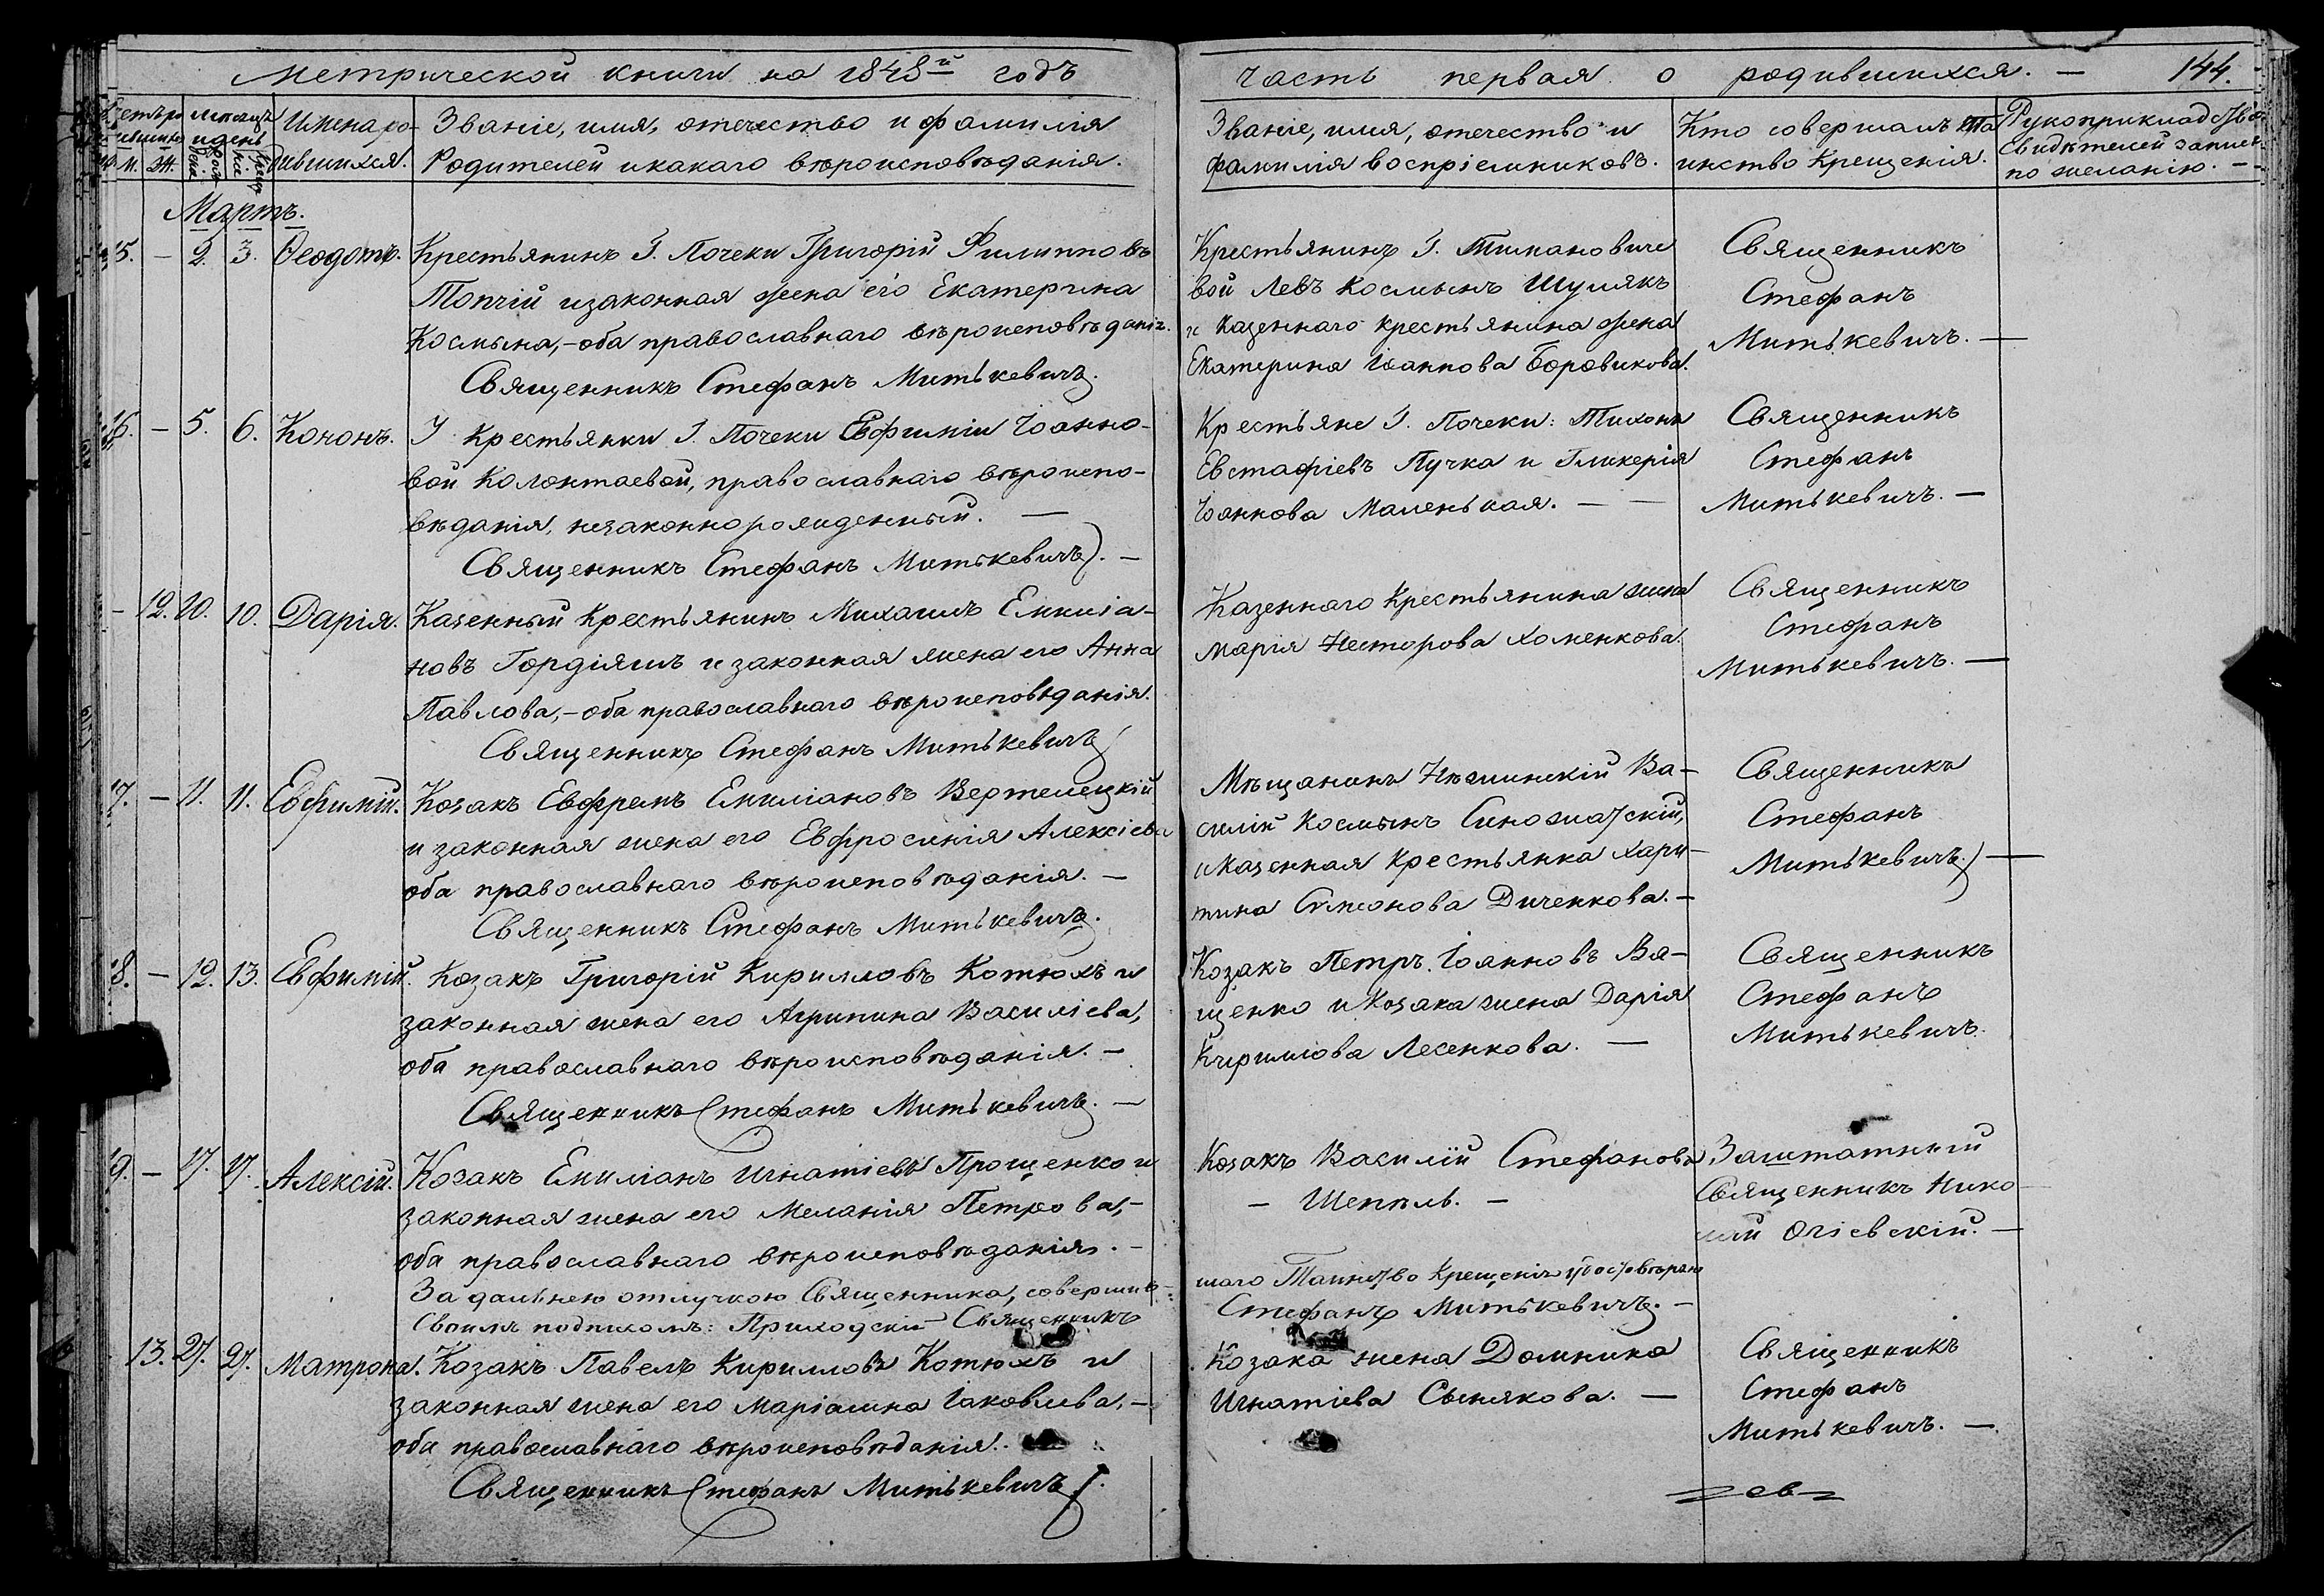 Метрической книги на 1848й годъ
часть первая о родившихся. — 144.
Имена ро-
дившихся.
Званіе, имя, отечество и фамилія
Родителей и какаго вѣроисповѣданія.
Званіе, имя, отечество и
фамилія воспріемниковъ.
Кто совершалъ Та
инство Крещенія.
Рукоприкладство
свидѣтелей записи
по желанію. —
Мартъ.
15. — 2. 3. Ѳеодотъ.
Крестьянинъ Г. Почеки Григорій Филипповъ
Топчій и законная жена его Екатерина
Космина, — оба православнаго вѣроисповѣданія.
Священникъ Стефанъ Митькевичъ.
Крестьянинъ Г. Тимановиче
вой Левъ Косминъ Шулякъ
и Казеннаго крестьянина жена
Екатерина Іоаннова Боровикова.
Священникъ
Стефанъ
Митькевичъ. —
16. — 5. 6. Кононъ.
У Крестьянки Г. Почеки Евфиміи Іоанно-
вой Колонтаевой, православнаго вѣроиспо-
вѣданія, незаконнорожденный. —
Священникъ Стефанъ Митькевичъ. —
Крестьяне Г. Почеки: Тихонъ
Евстафіевъ Пучка и Гликерія
Іоаннова Маленькая. — —
Священникъ
Стефанъ
Митькевичъ. —
— 12. 10. 10. Дарія.
Казенный Крестьянинъ Михаилъ Емиліа-
новъ Гордіяшъ и законная жена его Анна
Павлова, — оба православнаго вѣроисповѣданія.
Священникъ Стефанъ Митькевичъ
Казеннаго Крестьянина жена
Марія Несторова Хоменкова.
Священникъ
Стефанъ
Митькевичъ. —
17. — 11. 11. Евфимій.
Козакъ Евфремъ Емиліановъ Вертелецкій
и законная жена его Евфросинія Алексіева
оба православнаго вѣроисповѣданія. —
Священникъ Стефанъ Митькевичъ.
Мѣщанинъ Нѣжинскій Ва-
силій Косминъ
и Казенная Крестьянка Хари-
тина Симонова Диченкова. —
Священникъ
Стефанъ
Митькевичъ. —
18. — 12. 13. Евфимій.
Козакъ Григорій Кирилловъ Котюхъ и
законная жена его Агрипина Василіева,
оба православнаго вѣроисповѣданія. —
Священникъ Стефанъ Митькевичъ. —
Козакъ Петръ Іоанновъ Ва-
щенко и Козака жена Дарія
Кириллова Лесенкова. —
Священникъ
Стефанъ
Митькевичъ.
19. — 17. 17. Алексій.
Козакъ Емиліанъ Игнатіевъ Прощенко и
законная жена его Меланія Петрова, —
оба православнаго вѣроисповѣданія. —
Козакъ Василій Стефановъ
— Шепель. —
Заштатный
Священникъ Нико-
лай Огіевскій. —
За дальнею отлучкою Священника, совершив-
шаго Таинство Крещенія удостовѣряю
Своимъ подписомъ: Приходскій Священникъ
Стефанъ Митькевичъ. —
13. 27. 27. Матрона.
Козакъ Павелъ Кирилловъ Котюхъ и
законная жена его Маріамна Іаковлева, —
оба православнаго вѣроисповѣданія.
Священникъ Стефанъ Митькевичъ.
Козака жена Домника
Игнатіева Сынякова. —
Священникъ
Стефанъ
Митькевичъ. —